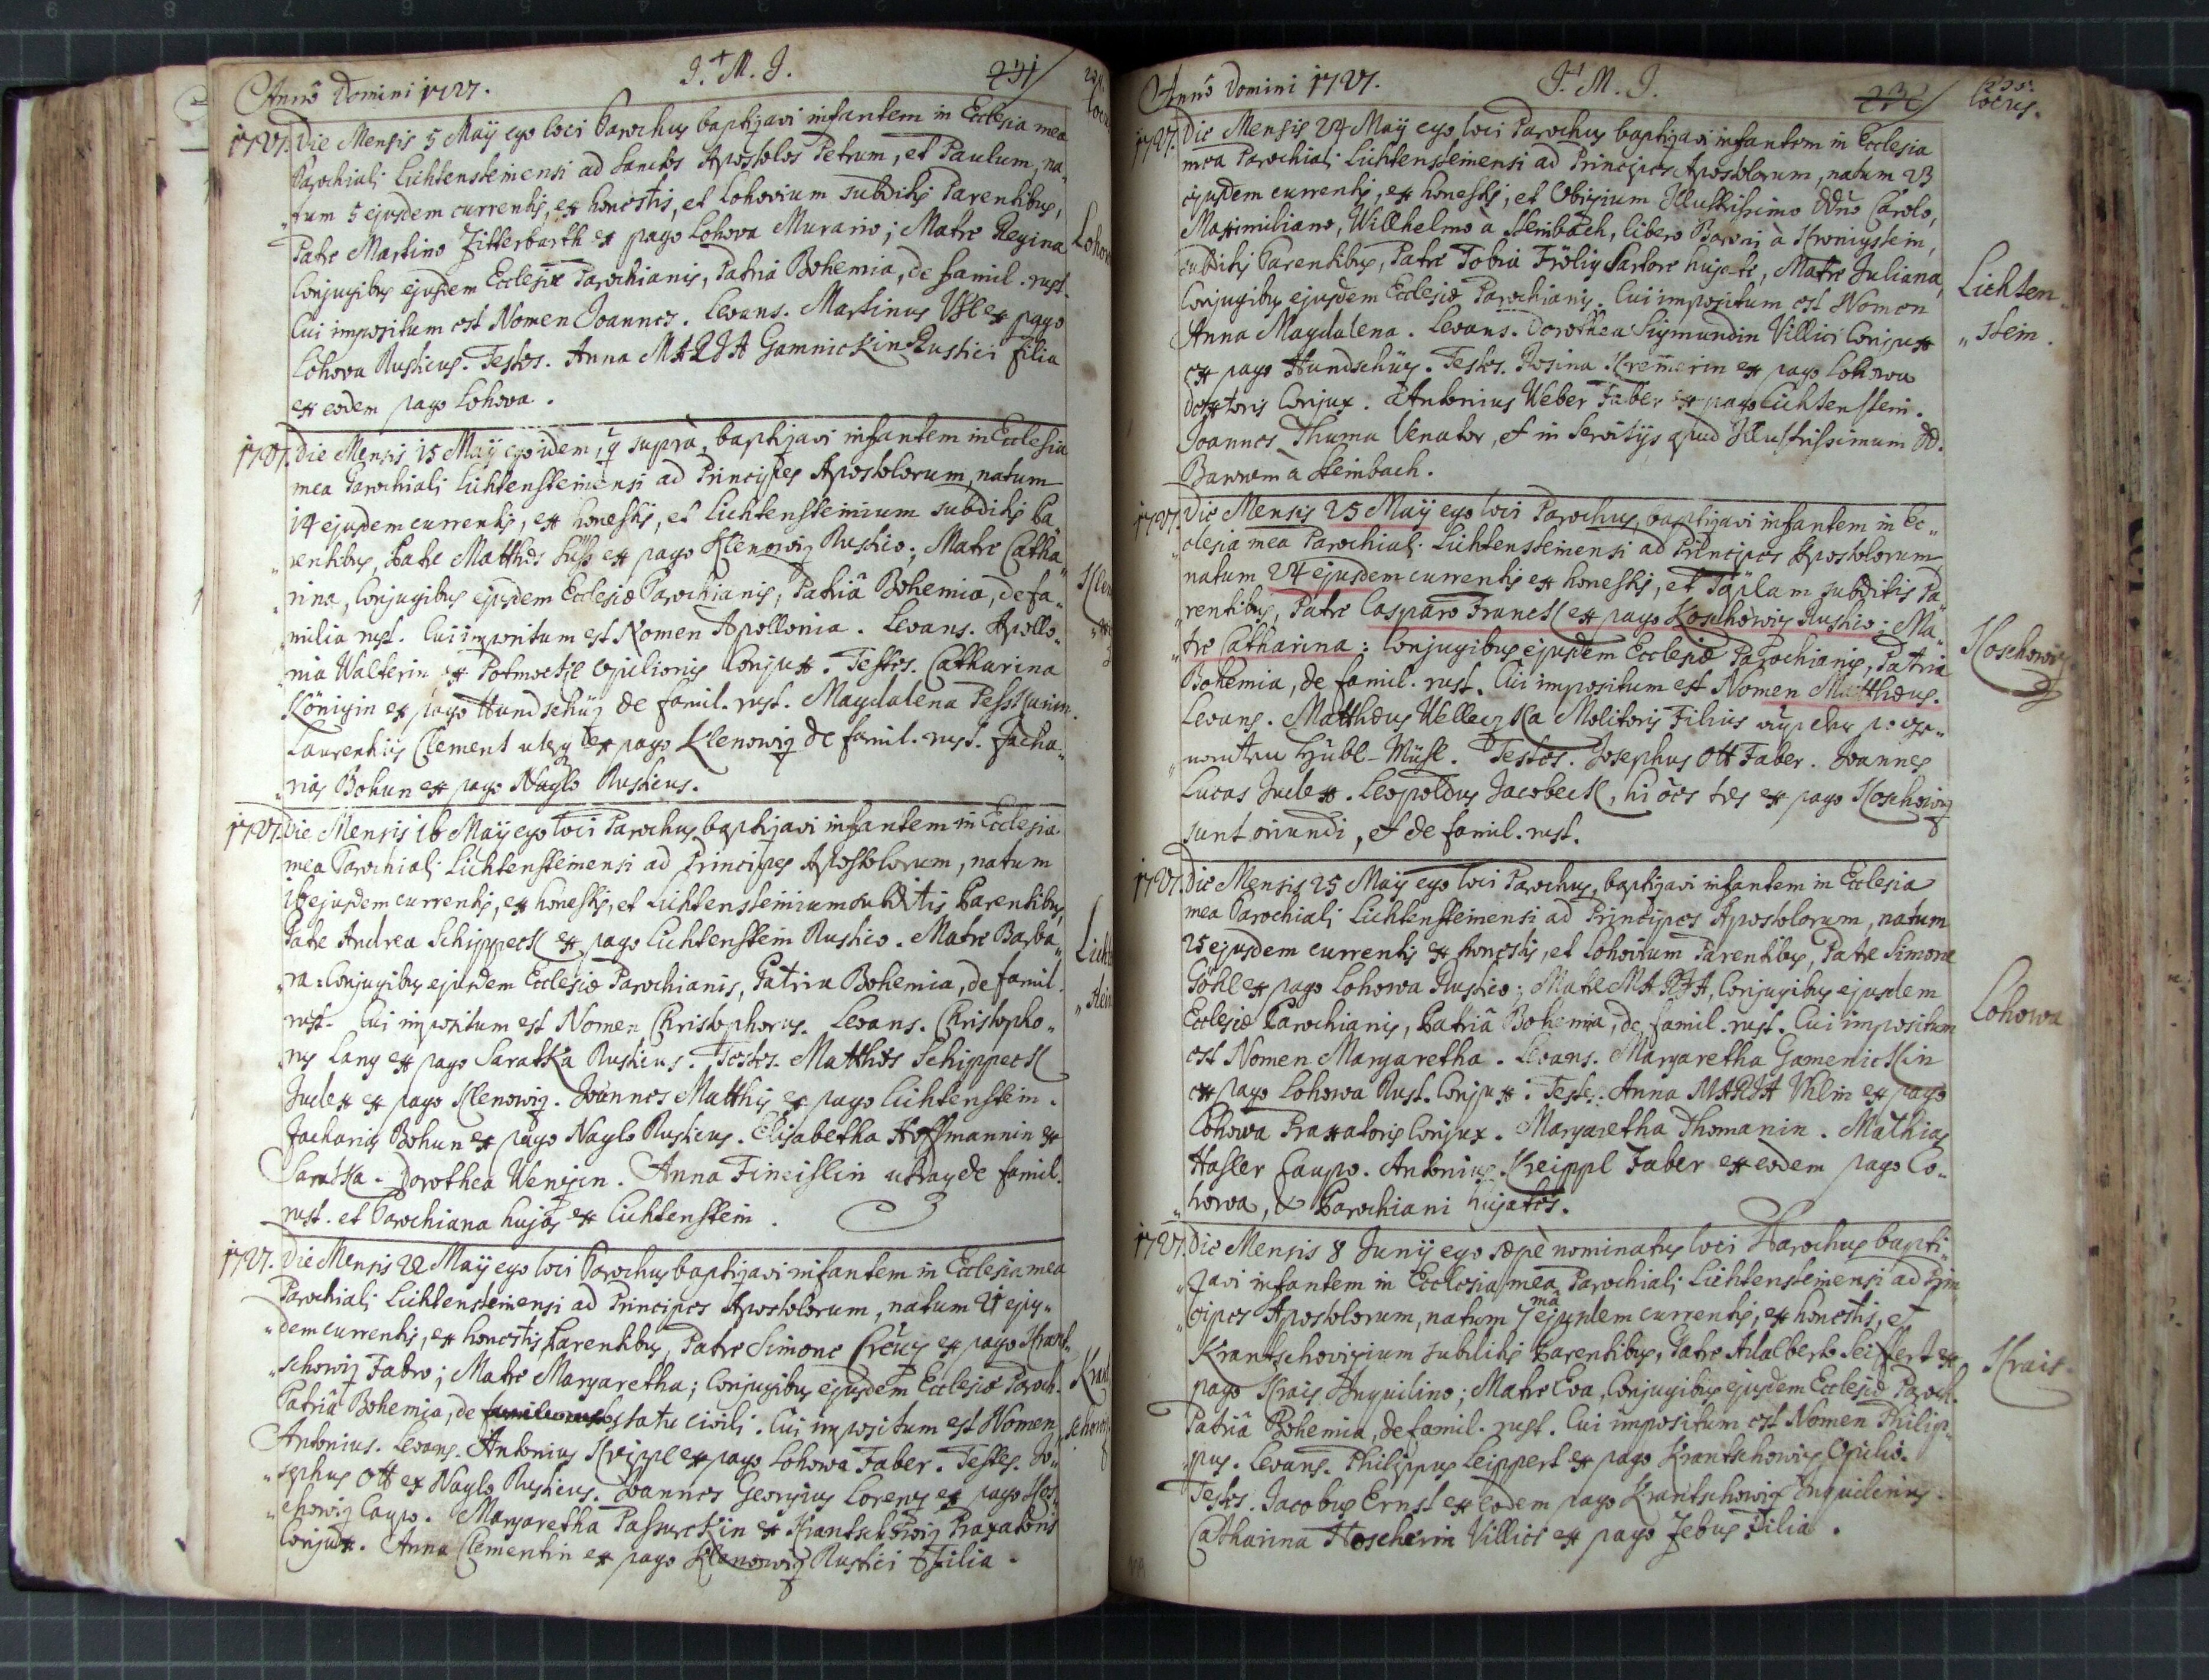 Anno Domini 1727. J. M. J. 231
1727. Die Mensis 5 Maÿ ego loci Parochus baptizavi infantem in Ecclesia mea
Parochiali Lichtensteinensi ad Sanctos Apostolos Petrum, et Paulum, na„
„tum 5 ejusdem currentis, ex honestis, et Lohovium subditis Parentibus,
Patre Martino Zitterbarth ex pago Lohova Murario; Matre Regina
Conjugibus ejusdem Ecclesiæ Parochianis, Patriâ Bohemia, de famil. rust.
Cui impositum est Nomen Joannes. Levans. Martinus Uhl ex pago
Lohova Rusticus. Testes. Anna MARIA Gamnickin Rustici filia
ex eodem pago Lohova.
1727. Die Mensis 15 Maÿ ego idem, q suprà, baptizavi infantem in Ecclesia
mea Parochiali Lichtensteinensi ad Principes Apostolorum, natum
14 ejusdem currentis, ex honestis, et Lichtensteinium subditis Pa„
„rentibus, Patre Matthæs ex pago Klenowiz Rustico; Matre Catha„
„rina, Conjugibus ejusdem Ecclesiæ Parochianis, Patriâ Bohemia, de fa„
„milia rust. Cui impositum est Nomen Apollonia. Levans. Apollo„
„nia Walterin, ex Opilionis Conjux. Testes. Catharina
Königin ex pago Hundschüz de famil. rust. Magdalena
Laurentius Clement ex pago Klenowiz de famil. rust. Zacha„
„rias Bohun ex pago Naglo Rusticus.
1727. Die Mensis 16 Maÿ ego loci Parochus baptizavi infantem in Ecclesia
mea Parochiali Lichtensteinensi ad Principes Apostolorum, natum
16 ejusdem currentis, ex honestis, et Lichtensteinium subditis Parentibus,
Patre Andrea Schippeck ex pago Lichtenstein Rustico. Matre Barba„
„ra: Conjugibus ejusdem Ecclesiæ Parochianis, Patria Bohemia, de famil.
rust. Cui impositum est Nomen Christophorus. Levans. Christopho„
„rus Lang ex pago Saratka Rusticus. Testes. Matthæs Schippeck
Judex ex pago Klenowiz. Joannes Matthis ex pago Lichtenstein.
Zacharias Bohun ex pago Naglo Rusticus. Elisabetha Hoffmannin ex
Saratka. Dorothea Wenzin. Anna de famil.
rust. et Parochiana ex Lichtenstein.
1727. Die Mensis 22 Maÿ ego loci Parochus baptizavi infantem in Ecclesia mea
Parochiali Lichtensteinensi ad Principes Apostolorum, natum 21 ejus„
„dem currentis, ex honestis Parentibus, Patre Simone Creüz ex pago Krant„
„schowiz Fabro; Matre Margaretha; Conjugibus ejusdem Ecclesiæ Paroch.
Patriâ Bohemia, de statu civili. Cui impositum est Nomen
Antonius. Levans. Antonius Kreippl ex pago Lohowa Faber. Testes. Jo„
„sephus Ott ex Naglo Rusticus. Joannes Georgius Lorenz ex pago Kos„
„chowiz Caupo. Margaretha ex Krantschowiz Praxatoris
Conjux. Anna Clementin ex pago Klenowiz Rustici Filia.
Anno Domini 1727. J. M. J. 232
Locus.
1727. Die Mensis 24 Maÿ ego loci Parochus baptizavi infantem in Ecclesia
mea Parochiali Lichtensteinensi ad Principes Apostolorum, natum 23
ejusdem currentis, ex honestis, et Illustrissimo Carolo,
Maximiliano, Willhelmo à Steinbach, libero Baroni à Kronigstein,
subditis Parentibus, Patre Tobia Frölig Sartore hujate, Matre Juliana,
Conjugibus ejusdem Ecclesiæ Parochianis. Cui impositum est Nomen
Anna Magdalena. Levans. Dorothea Sigmundin Villici Conjux
ex pago Hundschüz. Testes. Rosina Kremerin ex pago Lohowa
Conjux. Antonius Weber Faber ex pago Lichtenstein.
Joannes Thuma Venator, et in Servitijs apud Illustrissimum D.
Baronem à Steinbach.
Lichten„
„stein.
1727. Die Mensis 25 Maÿ ego loci Parochus, baptizavi infantem in Ec„
„clesia mea Parochiali Lichtensteinensi ad Principes Apostolorum,
natum 24 ejusdem currentis ex honestis, et Töplam subditis Pa„
„rentibus, Patre Casparo Franck ex pago Koschowiz Rustico; Ma„
„tre Catharina: Conjugibus ejusdem Ecclesiæ Parochianis, Patria
Bohemia, de famil. rust. Cui impositum est Nomen Matthæus.
Levans. Matthæus Molitoris Filius
Hübl-Mühl. Testes. Josephus Ott Faber. Joannes
Lucas Judex. Leopoldus Jacobeck, hi ões tes ex pago Koschowiz
sunt oriundi, et de famil. rust.
Koschowiz
1727. Die Mensis 25 Maÿ ego loci Parochus, baptizavi infantem in Ecclesia
mea Parochiali Lichtensteinensi ad Principes Apostolorum, natum
25 ejusdem currentis ex honestis, et Lohovium Parentibus, Patre Simone
Göhl ex pago Lohowa Rustico; Matre MARIA, Conjugibus ejusdem
Ecclesiæ Parochianis, Patriâ Bohemia, de famil. rust. Cui impositum
est Nomen Margaretha. Levans. Margaretha Gamenickin
ex pago Lohowa Rust. Conjux. Testes. Anna MARIA Uhlin ex pago
Lohowa Praxatoris Conjux. Margaretha Thomanin. Mathias
Hasler Caupo. Antonius Kreippl Faber ex eodem pago Lo„
„howa, et Parochiani hujates.
Lohowa
1727. Die Mensis 8 Junij ego sæpè nominatus loci Parochus bapti„
„zavi infantem in Ecclesia mea Parochiali Lichtensteinensi ad Prin„
„cipes Apostolorum, natum 7mâ ejusdem currentis, ex honestis, et
Krantschovizium subditis Parentibus, Patre Adalberto Seiffert ex
pago Krais Inquilino; Matre Eva, Conjugibus ejusdem Ecclesiæ Paroch.
Patriâ Bohemia, de famil. rust. Cui impositum est Nomen Philip„
„pus. Levans. Philippus Leippert ex pago Krantschowiz Opilio.
Testes. Jacobus Ernst ex eodem pago Krantschowiz Inquilinus.
Catharina Hoscherin Villici ex pago Zebus Filia.
Krais